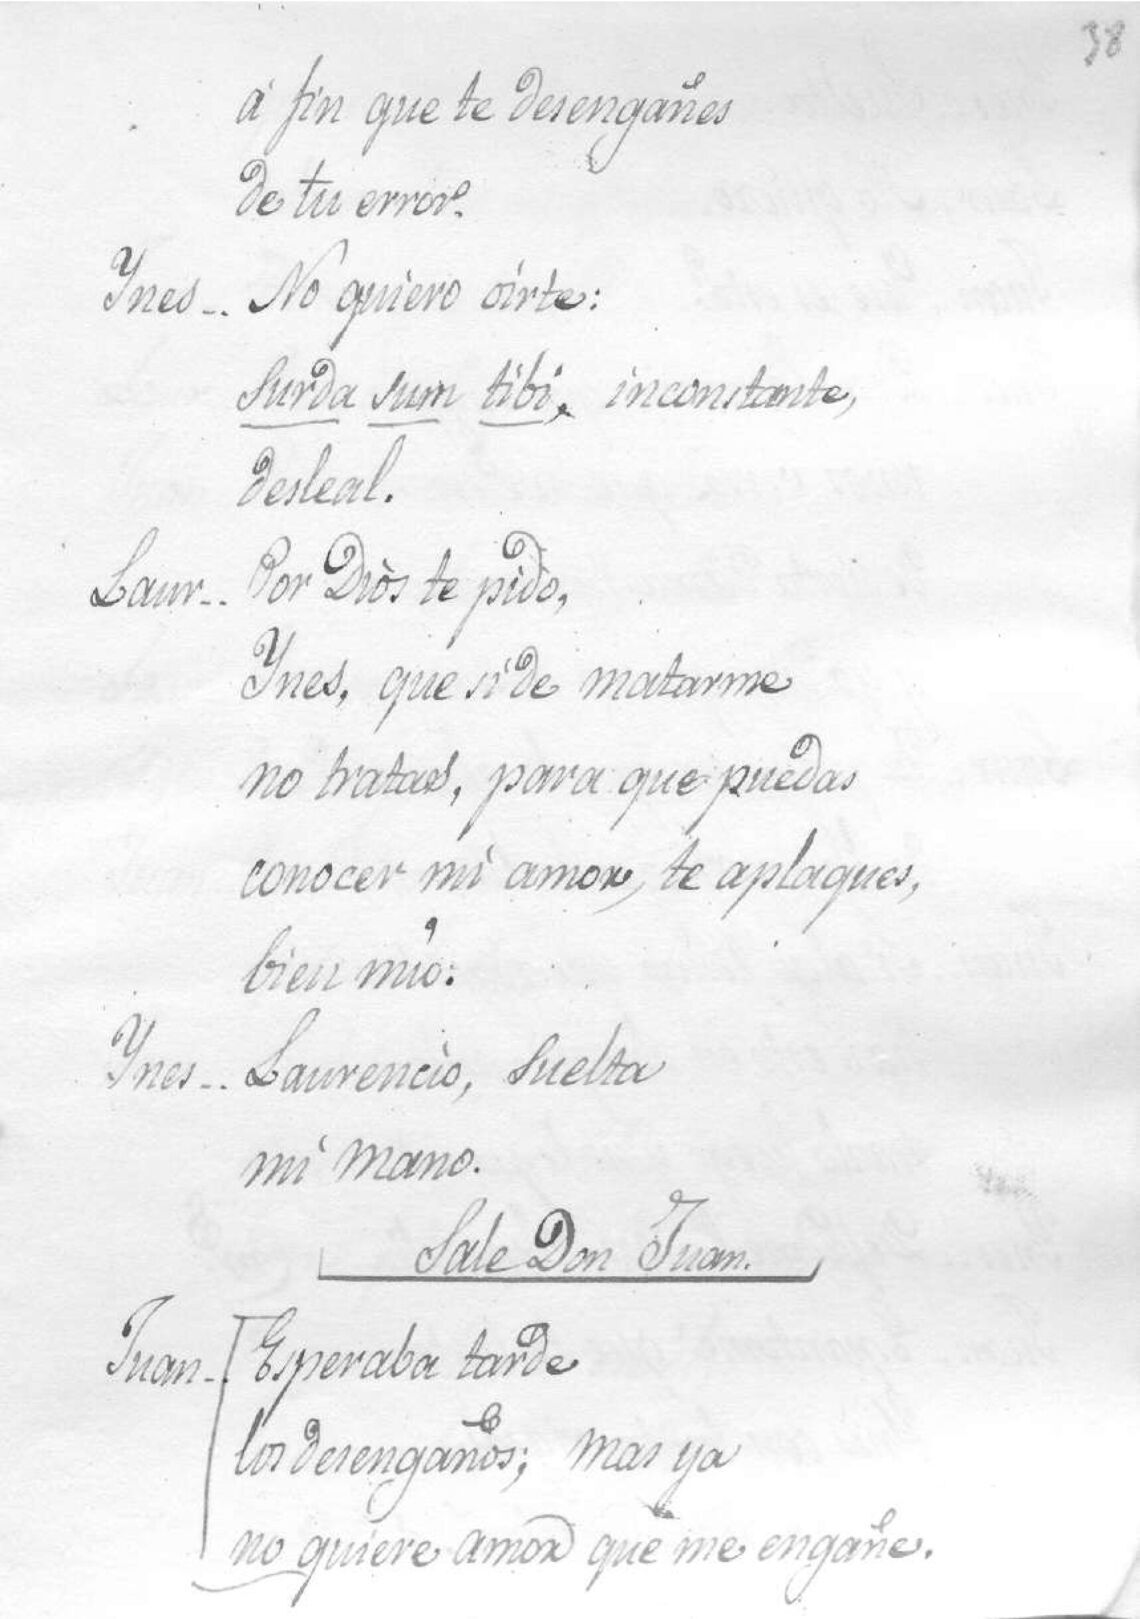 38
á fin que te desengañes
de tu error.
Ynes-. No quiero oírte:
surda sum tibi, inconstante,
desleal.
Laur-. Por Diòs te pidò,
Ynes, que si de matarme
no tratas, para que puedas
conocer mi amor, te aplaques,
bien mio:
Ynes-. Laurencio, suelta
mi mano.
Sale Don Juan.
Juan-. Esperaba tarde
los desengaños; mas ya
no quiere amor que me engañe.